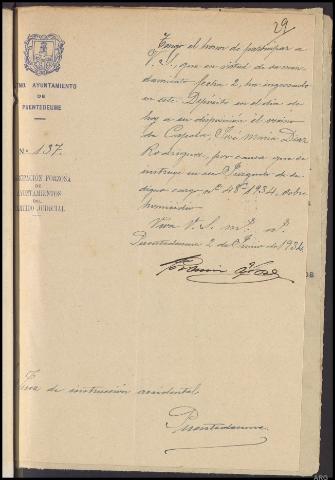 29
AYUNTAMIENTO
DE
PUENTEDEUME
Nº 137.
AGRUPACIÓN FORZOSA
DE
AYUNTAMIENTOS
DEL
PARTIDO JUDICIAL
Tengo el honor de participar a
V. S., que en virtud de su man-
damiento fecha 2, ha ingresado
en este Depósito en el día de
hoy a su disposición el vecino
de Capela, José María Diaz
Rodriguez, por causa que se
instruye en su Juzgado de su
digno cargo nº 48, 1934, sobre
homicidio
Viva V. S. mˢ. aˢ.
Puentedeume 2 de Junio de 1934.
Juez de instrucción accidental,
Puentedeume